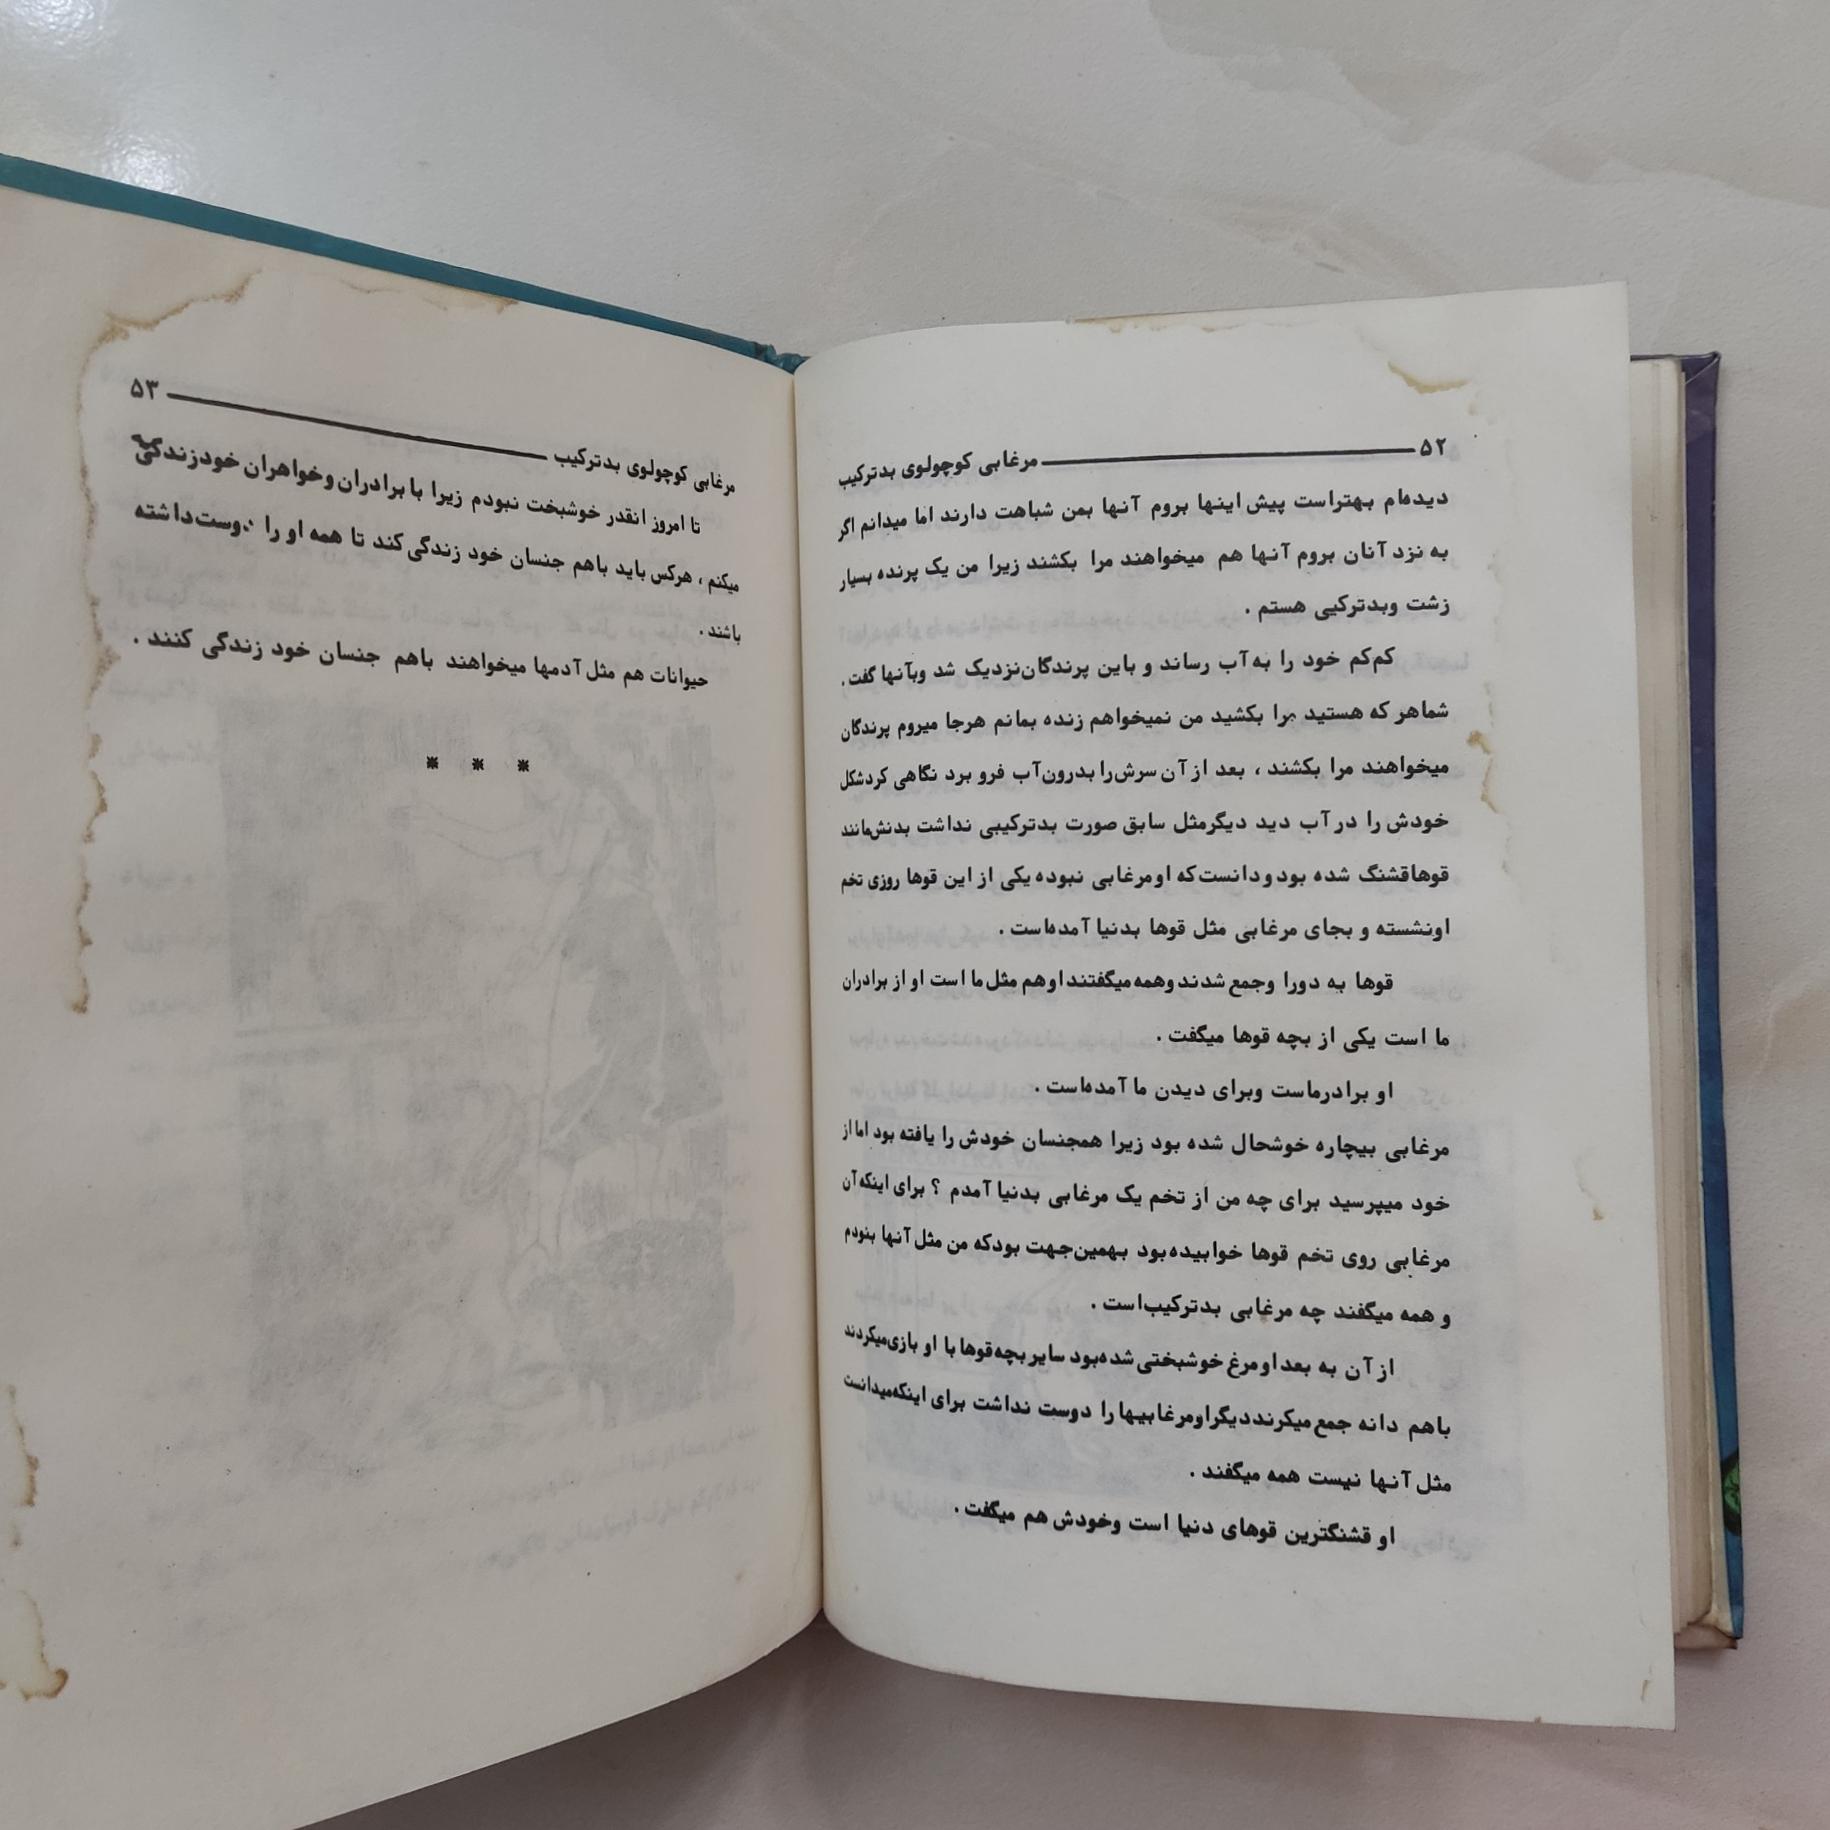 ۵۲ مرغابی کوچولوی بدترکیب
دیده‌ام بهتراست پیش اینها بروم آنها بمن شباهت دارند اما میدانم اگر
به نزد آنان بروم آنها هم میخواهند مرا بکشند زیرا من یک پرنده بسیار
زشت وبدترکیی هستم .
کم‌کم خود را به آب رساند و باین پرندگان نزدیک شد وبآنها گفت .
شماهر که هستید مرا بکشید من نمیخواهم زنده بمانم هرجا میروم پرندگان
میخواهند مرا بکشند ، بعد از آن سرش را بدرون آب فرو برد نگاهی کردشکل
خودش را در آب دید دیگرمثل سابق صورت بدترکیبی نداشت بدنش‌مانند
قوهاقشنگ شده بود و دانست که اومرغابی نبوده یکی از این قوها روزی تخم
اونشسته و بجای مرغابی مثل قوها بدنیا آمده‌است .
قوها به دورا وجمع شدند وهمه میگفتند اوهم مثل ما است او از برادران
ما است یکی از بچه قوها میگفت .
او برادرماست وبرای دیدن ما آمده‌است .
مرغابی بیچاره خوشحال شده بود زیرا همجنسان خودش را یافته بود اما از
خود میپرسید برای چه من از تخم یک مرغابی بدنیا آمدم ؟ برای اینکه آن
مرغابی روی تخم قوها خوابیده بود بهمین‌جهت بودکه من مثل آنها بنودم
و همه میگفند چه مرغابی بدترکیب‌است .
از آن به بعد اومرغ خوشبختی شده‌بود سایر بچه قوها با او بازی‌میکردند
باهم دانه جمع میکرنددیگراومرغابیها را دوست نداشت برای اینکه‌میدانست
مثل آنها نیست همه میگفند .
او قشنگترین قوهای دنیا است وخودش هم میگفت .
۵۳
مرغابی کوچولوی بدترکیب
تا امروز انقدر خوشبخت نبودم زیرا با برادران وخواهران خودزندگی
میکنم ، هرکس باید باهم جنسان خود زندگی کند تا همه او را دوست‌داشته
باشند .
حیوانات هم مثل آدمها میخواهند باهم جنسان خود زندگی کنند .
* * *